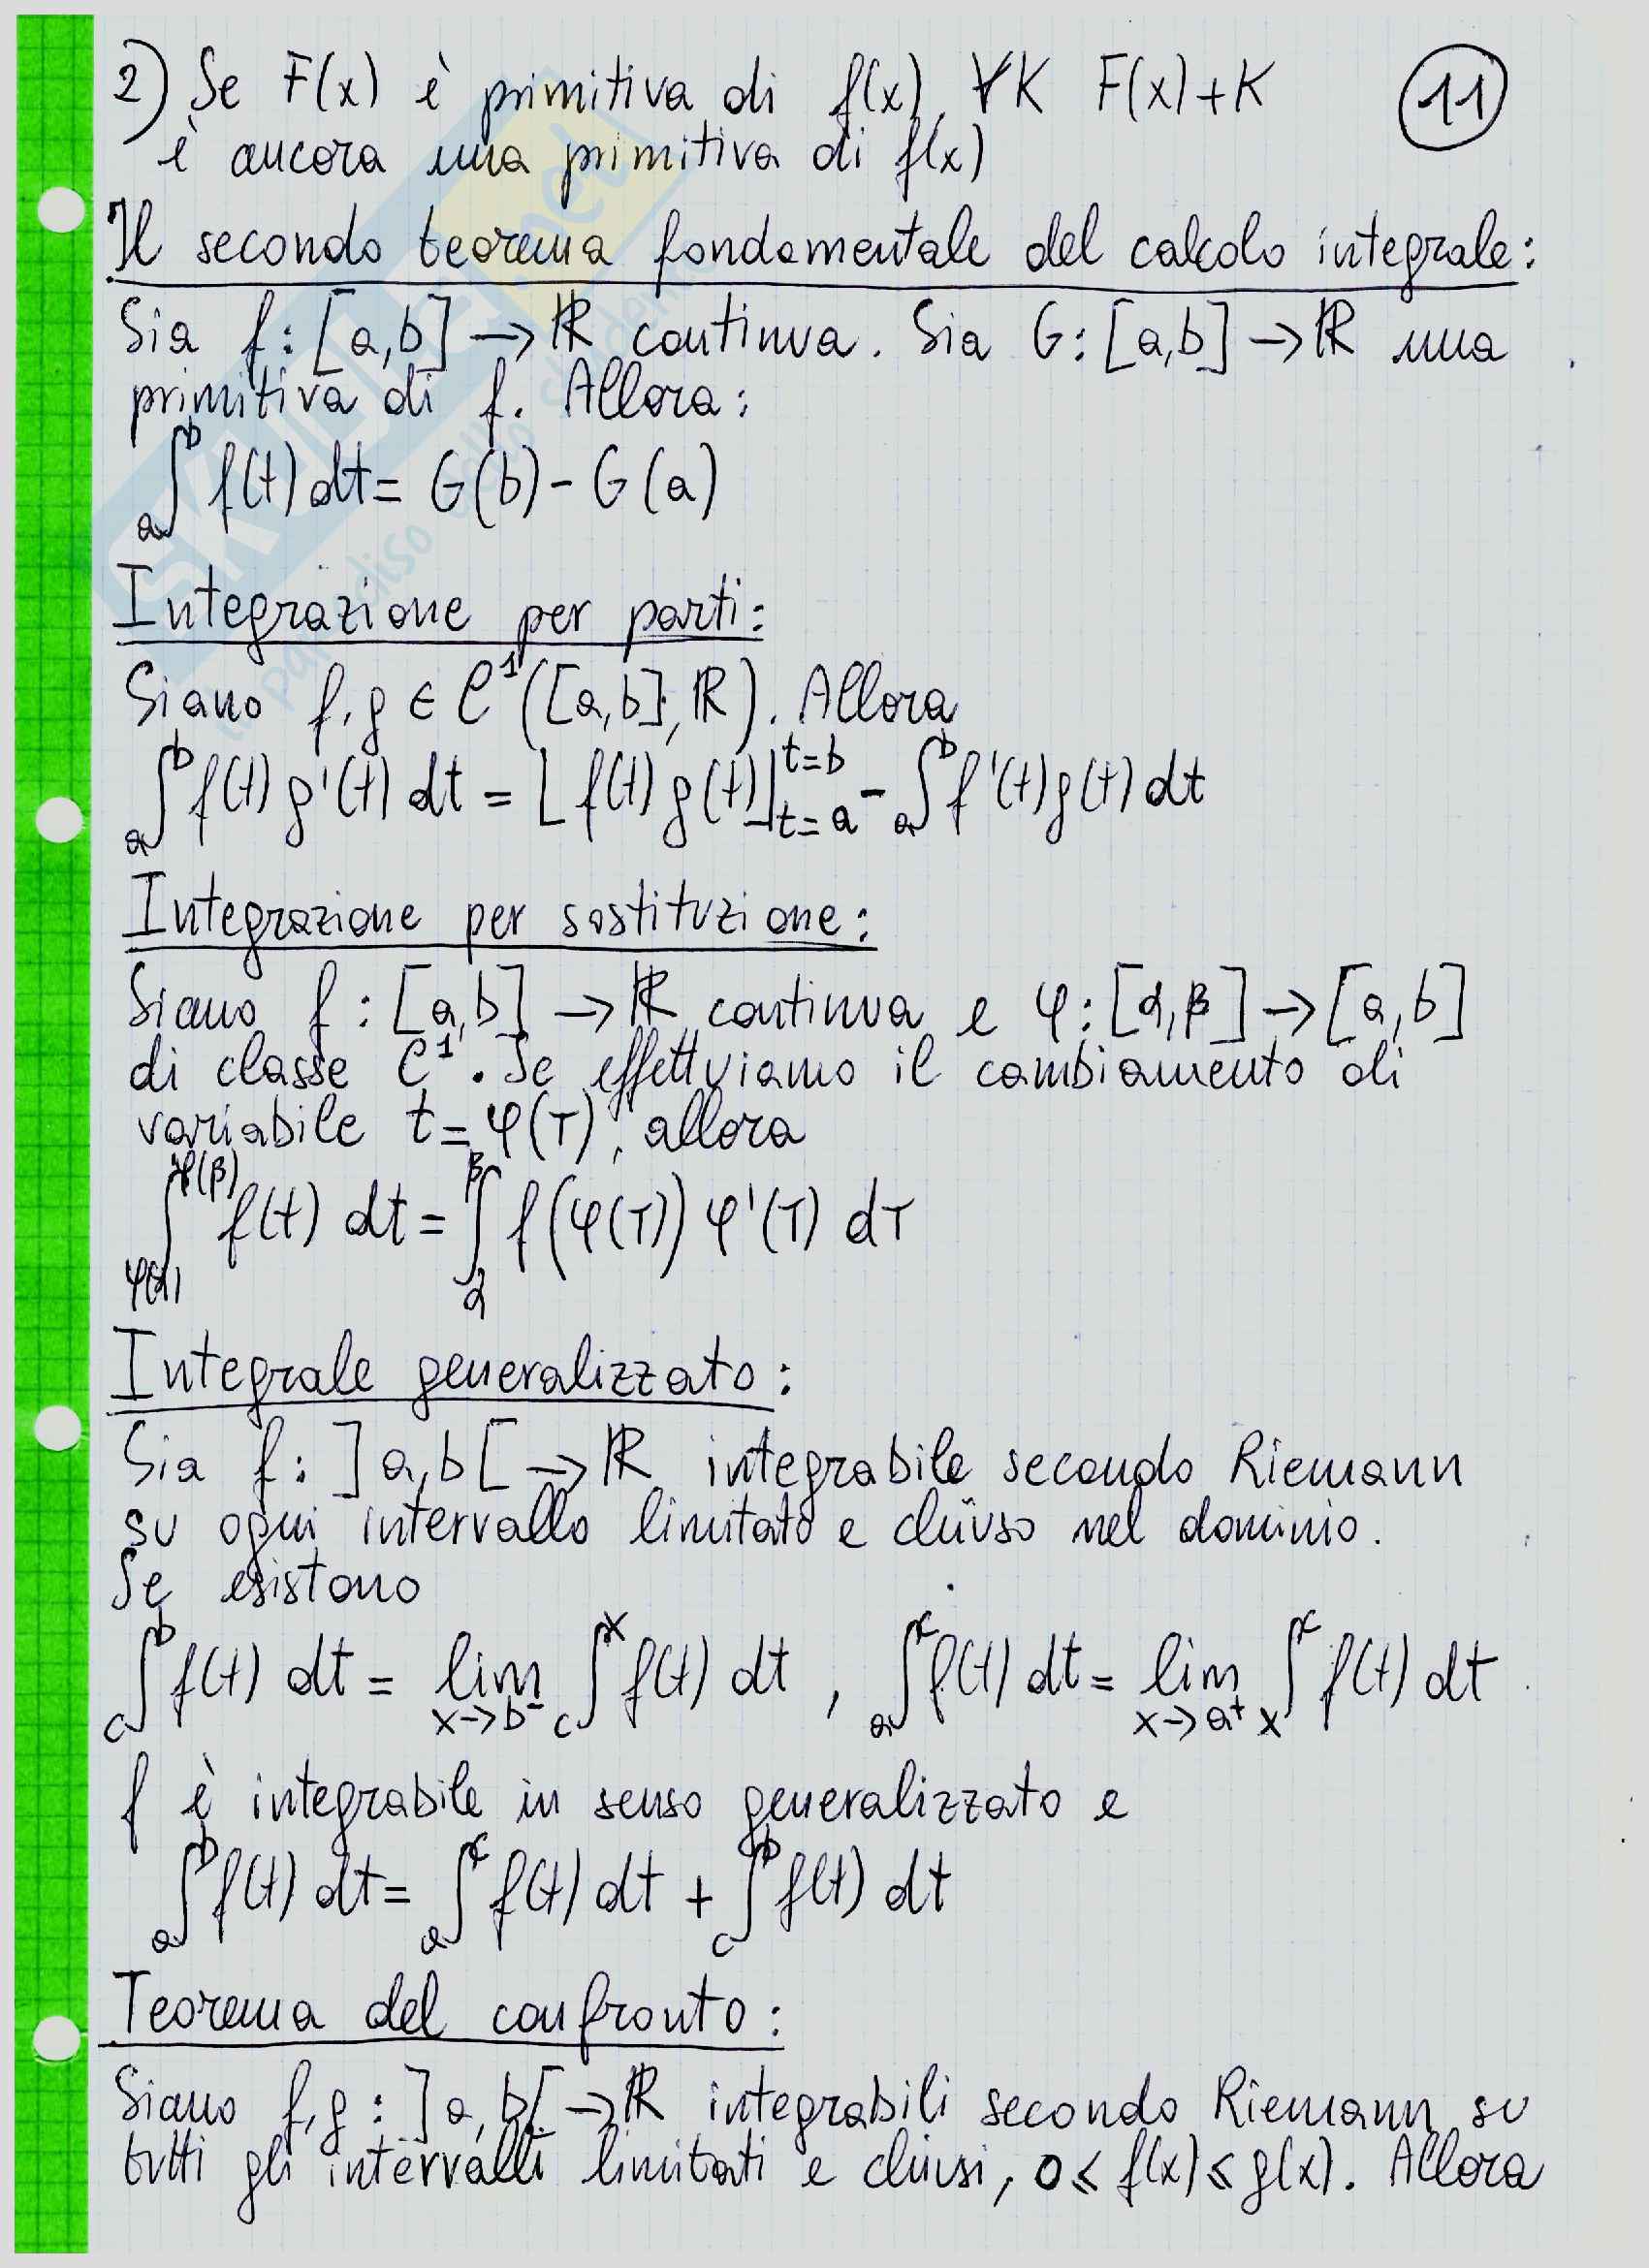 2) Se F(x) è primitiva di f(x), ∀K F(x)+K
11
è ancora una primitiva di f(x)
Il secondo teorema fondamentale del calcolo integrale:
Sia f: [a,b] → ℝ continua. Sia G: [a,b] → ℝ una
primitiva di f. Allora:
∫_a^b f(t) dt = G(b) - G(a)
Integrazione per parti:
Siano f, g ∈ C¹([a,b], ℝ). Allora
∫_a^b f(t) g'(t) dt = [f(t) g(t)]_{t=a}^{t=b} - ∫_a^b f'(t) g(t) dt
Integrazione per sostituzione:
Siano f: [a,b] → ℝ continua e φ: [α,β] → [a,b]
di classe C¹. Se effettuiamo il cambiamento di
variabile t = φ(τ), allora
∫_{φ(α)}^{φ(β)} f(t) dt = ∫_α^β f(φ(τ)) φ'(τ) dτ
Integrale generalizzato:
Sia f: ]a,b[ → ℝ integrabile secondo Riemann
su ogni intervallo limitato e chiuso nel dominio.
Se esistono
∫_c^b f(t) dt = lim_{x→b⁻} ∫_c^x f(t) dt, ∫_a^c f(t) dt = lim_{x→a⁺} ∫_x^c f(t) dt
f è integrabile in senso generalizzato e
∫_a^b f(t) dt = ∫_a^c f(t) dt + ∫_c^b f(t) dt
Teorema del confronto:
Siano f, g: ]a,b[ → ℝ integrabili secondo Riemann su
tutti gli intervalli limitati e chiusi, 0 ≤ f(x) ≤ g(x). Allora